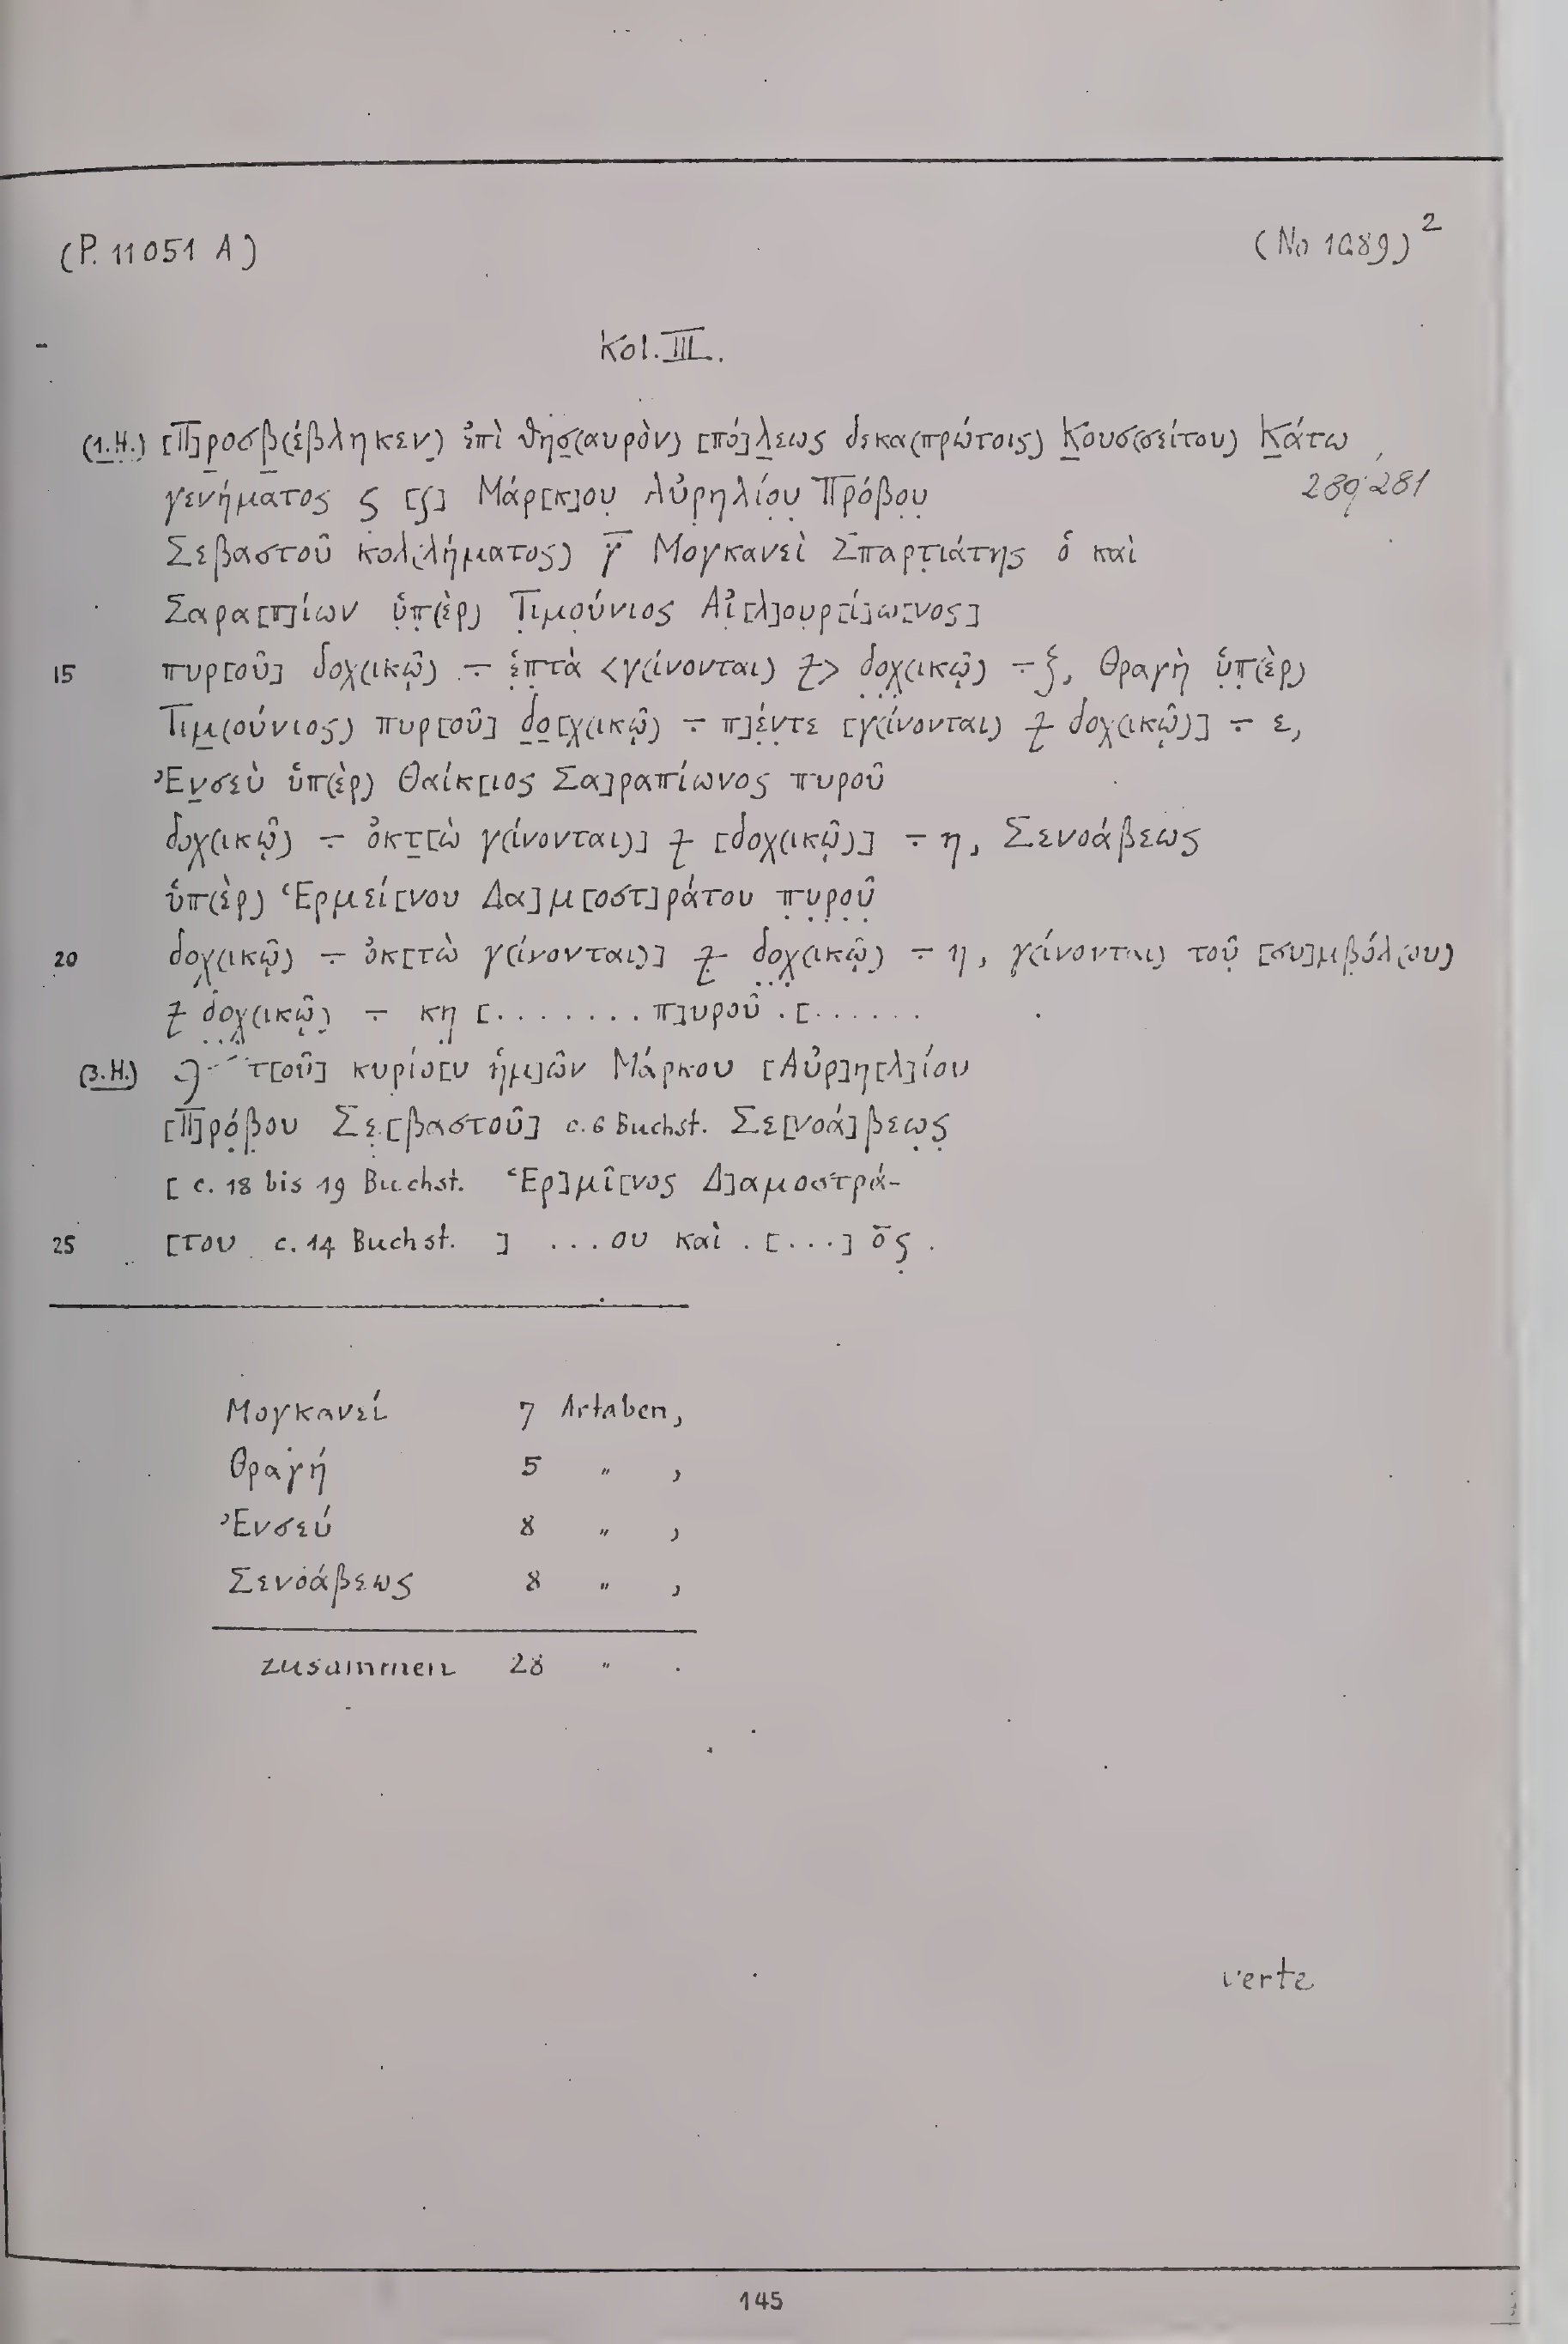 (P. 11051 A)
(No 1689)²
Kol. III.
(1.H.) [Π]ροσβ(έβληκεν) ἐπὶ θησ(αυρὸν) [πό]λεως δεκα(πρώτοις) Κουσ(σείτου) Κάτω
γενήματος ς [ʃ] Μάρ[κ]ου Αὐρηλίου Πρόβου
289·281
Σεβαστοῦ κολ(λήματος) γ̅ Μογκανεὶ Σπαρτιάτης ὁ καὶ
Σαρα[π]ίων ὑπ(ὲρ) Τιμούνιος Αἰ[λ]ουρ[ί]ω[νος]
15 πυρ[οῦ] δοχ(ικῷ) ∸ ἑπτὰ <γ(ίνονται) 𐅸> δοχ(ικῷ) ∸ ζ, Θραγὴ ὑπ(ὲρ)
Τιμ(ούνιος) πυρ[οῦ] δο[χ(ικῷ) ∸ π]έντε [γ(ίνονται) 𐅸 δοχ(ικῷ)] ∸ ε,
Ἐνσεὺ ὑπ(ὲρ) Θαίκ[ιος Σα]ραπίωνος πυροῦ
δοχ(ικῷ) ∸ ὀκτ[ὼ γ(ίνονται)] 𐅸 [δοχ(ικῷ)] ∸ η, Σενοάβεως
ὑπ(ὲρ) Ἑρμεί[νου Δα]μ[οστ]ράτου πυροῦ
20 δοχ(ικῷ) ∸ ὀκ[τὼ γ(ίνονται)] 𐅸 δοχ(ικῷ) ∸ η, γ(ίνονται) τοῦ [συ]μβόλ(ου)
𐅸 δοχ(ικῷ) ∸ κη [. . . . . . . . π]υροῦ . [. . . . . .
(3.H.) τ[οῦ] κυρίο[υ ἡμ]ῶν Μάρκου [Αὐρ]η[λ]ίου
[Π]ρόβου Σε[βαστοῦ] c. 6 Buchst. Σε[νοά]βεως
[ c. 18 bis 19 Buchst. Ἑρ]μῖ[νος Δ]αμοστρά-
25 [του c. 14 Buchst. ] . . . ου καὶ . [. . .] ο̅ς .
Μογκανεί 7 Artaben,
Θραγή 5 " ,
Ἐνσεύ 8 " ,
Σενοάβεως 8 " ,
zusammen 28 " .
verte
145